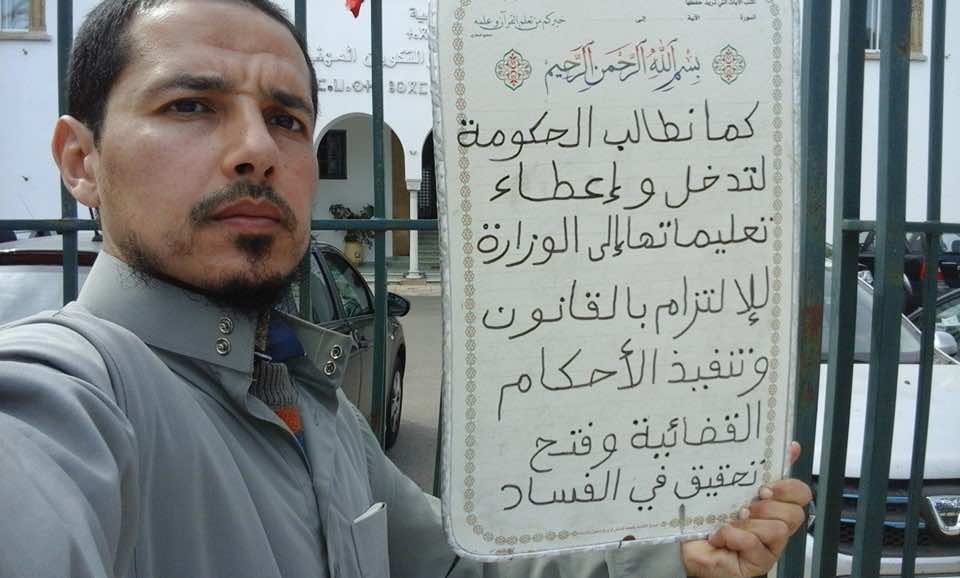 السورة الآية إلى
خيركم من تعلم القرآن و علمه
بسم الله الرحمن الرحيم
كما نطالب الحكومة
لتدخل و إعطاء
تعليماتها إلى الوزارة
للإلتزام بالقانون
وتنفيذ الأحكام
القضائية و فتح
تحقيق في الفساد
التكوين المهني